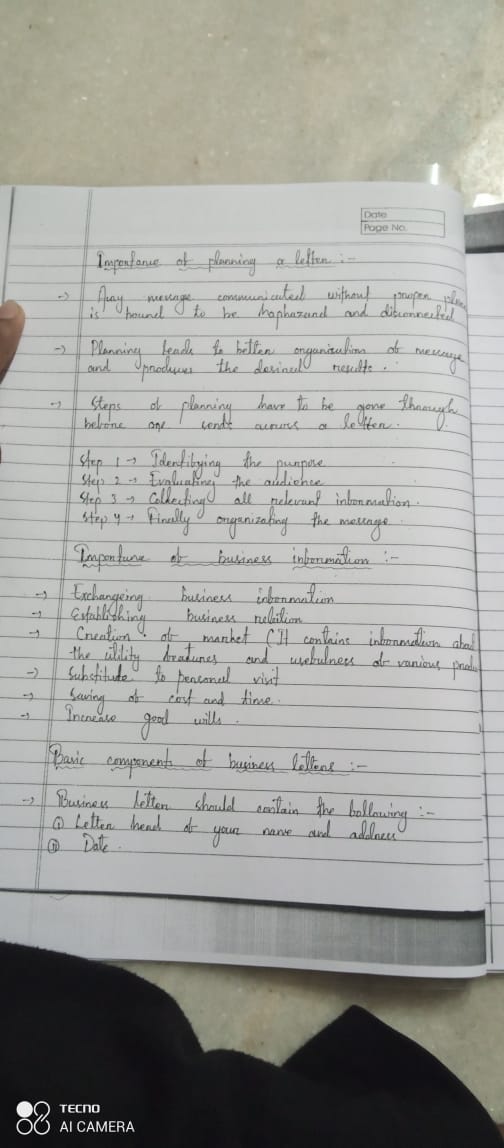 Date
Page No.
Importance of planning a letter :-
→ Any message communicated without proper
is bound to be haphazard and disconnected
→ Planning leads to better organization of message
and produces the desired results.
→ Steps of planning have to be gone through
before one sends across a letter.
Step 1 → Identifying the purpose
Step 2 → Evaluating the audience
Step 3 → Collecting all relevant information.
Step 4 → Finally organizating the message.
Importance of business information :-
→ Exchangeing business information
→ Establishing business relation
→ Creation of market (It contains information
the utility features and usefulness of various
→ Substitude to personel visit
→ Saving of cost and time.
→ Increase good wills.
Basic components of business letters :-
→ Business letter should contain the following :-
① Letter head of your name and address
② Date.
TECNO
AI CAMERA